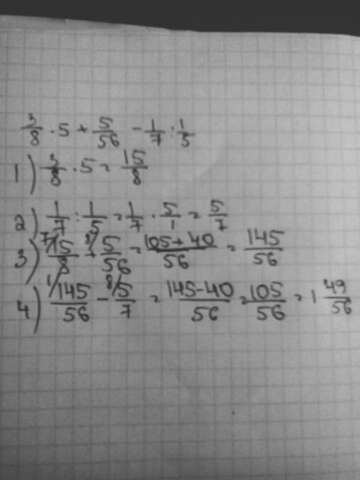 3/8 · 5 + 5/56 - 1/7 : 1/5
1) 3/8 · 5 = 15/8
2) 1/7 : 1/5 = 1/7 · 5/1 = 5/7
3) 7/15/8 + 5/56 = 105+40/56 = 145/56
4) 1/145/56 - 8/5/7 = 145-40/56 = 105/56 = 1 49/56